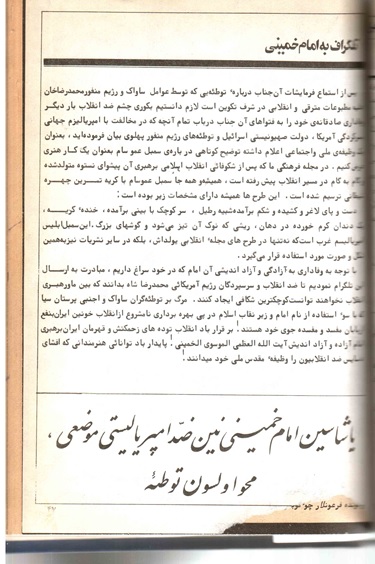 تلگراف به امام خمینی
پس از استماع فرمایشات آن جناب درباره توطئه‌یی که توسط عوامل ساواک و رژیم منفور محمدرضاخان
علیه مطبوعات مترقی و انقلابی در شرف تکوین است لازم دانستیم بکوری چشم ضد انقلاب بار دیگر
وفاداری صادقانه‌ی خود را به فتواهای آن جناب درباب تمام آنچه که در مخالفت با امپریالیزم جهانی
بسرکردگی آمریکا، دولت صهیونیستی اسرائیل و توطئه‌های رژیم منفور پهلوی بیان فرموده‌اید، بعنوان
وظیفه‌ی ملی واجتماعی اعلام داشته توضیح کوتاهی در باره‌ی سمبل عموسام بعنوان یک کار هنری
کنیم. در مجله فرهنگی ما که پس از شکوفائی انقلاب اسلامی برهبری آن پیشوای ستوه متولدشده
گام به گام در مسیر انقلاب پیش رفته است، همیشه و همه جا سمبل عموسام با کریه ترین چهره
شیطانی ترسیم شده است. این طرح ها همیشه دارای مشخصات زیر بوده است:
دست و پای لاغر و کشیده و شکم برآمده شبیه رطیل، سر کوچک با بینی برآمده، خنده کریه،
دندان کرم خورده در دهان، ریشی که نوک آن تیز می‌شود و گوشهای بزرگ. این سمبل ابلیس
امپریالیسم غرب است که نه‌تنها در طرح های مجله انقلابی یولداش، بلکه در سایر نشریات نیز به‌همین
شکل و صورت مورد استفاده قرار می‌گیرد.
با توجه به وفاداری به آزادگی و آزاد اندیشی آن امام که در خود سراغ داریم، مبادرت به ارسال
این تلگرام نمودیم تا ضد انقلاب و سرسپردگان رژیم آمریکائی محمدرضا شاه بدانند که بین ما و رهبری
انقلاب نخواهند توانست کوچکترین شکافی ایجاد کنند. مرگ بر توطئه‌گران ساواک و اجنبی پرستان سیا
که با سو استفاده از نام امام و زیر نقاب اسلام در پی بهره برداری نامشروع از انقلاب خونین ایران بنفع
اربابان مفسد و مفسده جوی خود هستند! بر قرار باد انقلاب توده های زحمتکش و قهرمان ایران برهبری
امام آزاده و آزاد اندیش آیت الله العظمی الموسوی الخمینی! پایدار باد توانائی هنرمندانی که افشای
دسایس ضد انقلابیون را وظیفه مقدس ملی خود میدانند!
یاشاسین امام خمینی نین ضد امپریالیستی موضعی،
محو اولسون توطئهٔ
فرعونلار
۴۷